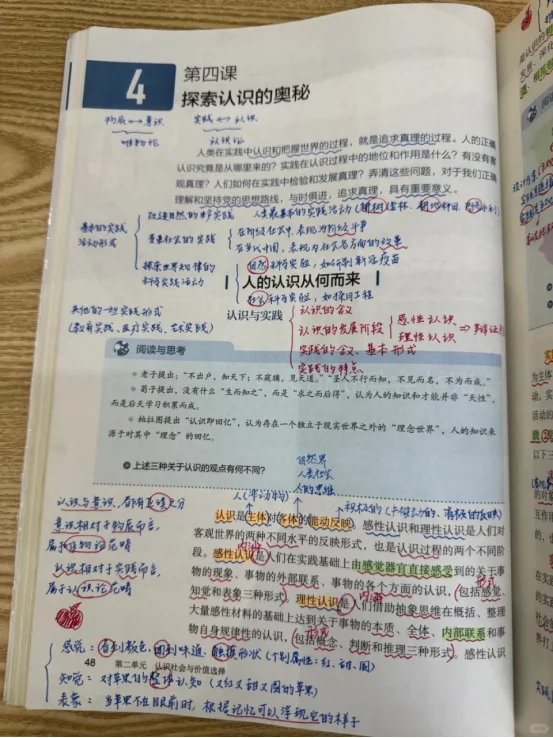 4
第四课
探索认识的奥秘
物质↔意识
实践↔认识
唯物论
认识论
人类在实践中认识和把握世界的过程，就是追求真理的过程。人的正确
认识究竟是从哪里来的？实践在认识过程中的地位和作用是什么？有没有客
观真理？人们如何在实践中检验和发展真理？弄清这些问题，对于我们正确
理解和坚持党的思想路线，与时俱进，追求真理，具有重要意义。
基本的实践
活动形式
改造自然的生产实践
人类最基本的实践活动
变革社会的实践
在阶级社会中，表现为阶级斗争
在当代中国，表现为社会各方面的改革
探索世界规律的
科学实验活动
自然科学实验，如研制新冠疫苗
人的认识从何而来
科学实验，如探月工程
其他的一些实践形式
（教育实践、医疗实践、艺术实践）
认识与实践
认识的含义
认识的发展阶段
感性认识
理性认识
实践的含义、基本形式
实践的特点
阅读与思考
老子提出：“不出户，知天下；不窥牖，见天道。”“圣人不行而知，不见而名，不为而成。”
荀子提出，没有什么“生而知之”，而是“求之而后得”，认为人的知识和才能并非“天性”，
而是后天学习积累而成。
柏拉图提出“认识即回忆”，认为存在一个独立于现实世界之外的“理念世界”，人的知识来
源于对其中“理念”的回忆。
上述三种关于认识的观点有何不同？
自然界
人类社会
人的思维
人（带动物）
认识与意识，有所区分
意识相对于物质而言，
属于唯物论范畴
认识相对于实践而言，
属于认识论范畴
认识是主体对客体的能动反映。感性认识和理性认识是人们对
客观世界的两种不同水平的反映形式，也是认识过程的两个不同阶
段。感性认识是人们在实践基础上由感觉器官直接感受到的关于事
物的现象、事物的外部联系、事物的各个方面的认识，（包括感觉、
知觉和表象三种形式）。理性认识是人们借助抽象思维在概括、整理
大量感性材料的基础上达到关于事物的本质、全体、内部联系和事
物自身规律性的认识，（包括概念、判断和推理三种形式）。感性认识
内容
形式
内容
形式
感觉：看到颜色、闻到味道、触摸形状（个别属性：红、甜、圆）
48
第二单元 认识社会与价值选择
知觉：对苹果的整体认知（又红又甜又圆的苹果）
表象：当苹果不在眼前时，根据记忆可以浮现它的样子